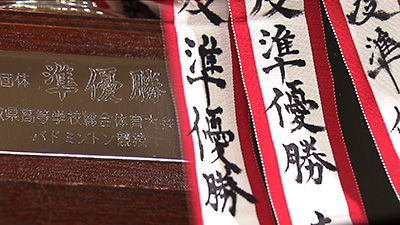 団体 準優勝
県高等学校総合体育大会
バドミントン競技
準優勝
準優勝
準